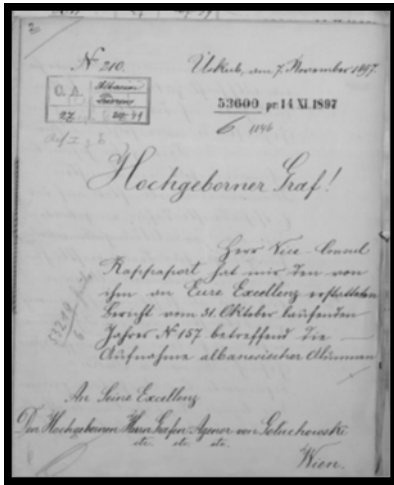 No 210.
Üsküb, am 7. November 1897.
53600 pr. 14 XI. 1897
6
C. A.
Albanien
27
Hochgeborner Graf!
Herr Vice-Consul
Rappaport hat mir den von
ihm an Eure Excellenz erstatteten
Bericht vom 31. Oktober laufenden
Jahres No 157 betreffend die
Aufnahme albanesischer Alumnen
An Seine Excellenz
Den Hochgebornen Herrn Grafen Agenor von Goluchowski
etc. etc. etc.
Wien.